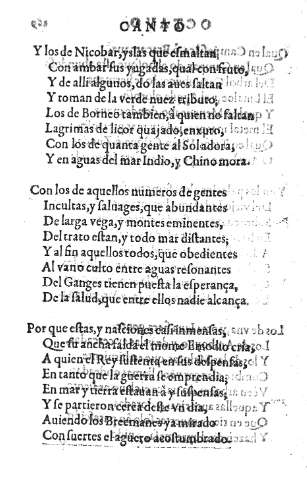 CANTO
Y los de Nicobar, yslas que esmaltan,
Con ambar sus yugadas, qual con fruto,
Y de alli algunos, do las aues saltan
Y toman de la verde nuez tributo;
Los de Borneo tambien, a quien no faltan
Lagrimas de licor quajado, enxuto,
Con los de quanta gente al Sol adora,
Y en aguas del mar Indio, y Chino mora.
Con los de aquellos numeros de gentes
Incultas, y saluages, que abundantes
De larga vega, y montes eminentes,
Del trato estan, y todo mar distantes;
Y al fin aquellos todos, que obedientes
Al vano culto entre aguas resonantes
Del Ganges tienen puesta la esperança,
De la salud, que entre ellos nadie alcança.
Por que estas, y naciones casi inmensas,
Que su ancha falda el monte Emodio cria,
A quien el Rey sustenta en sus despensas,
En tanto que la guerra se emprendia;
En mar y tierra estauan ya suspensas,
Y se partieron cerca deste dia,
Auiendo los Breemanes ya mirado
Con suertes el aguero acostumbrado.